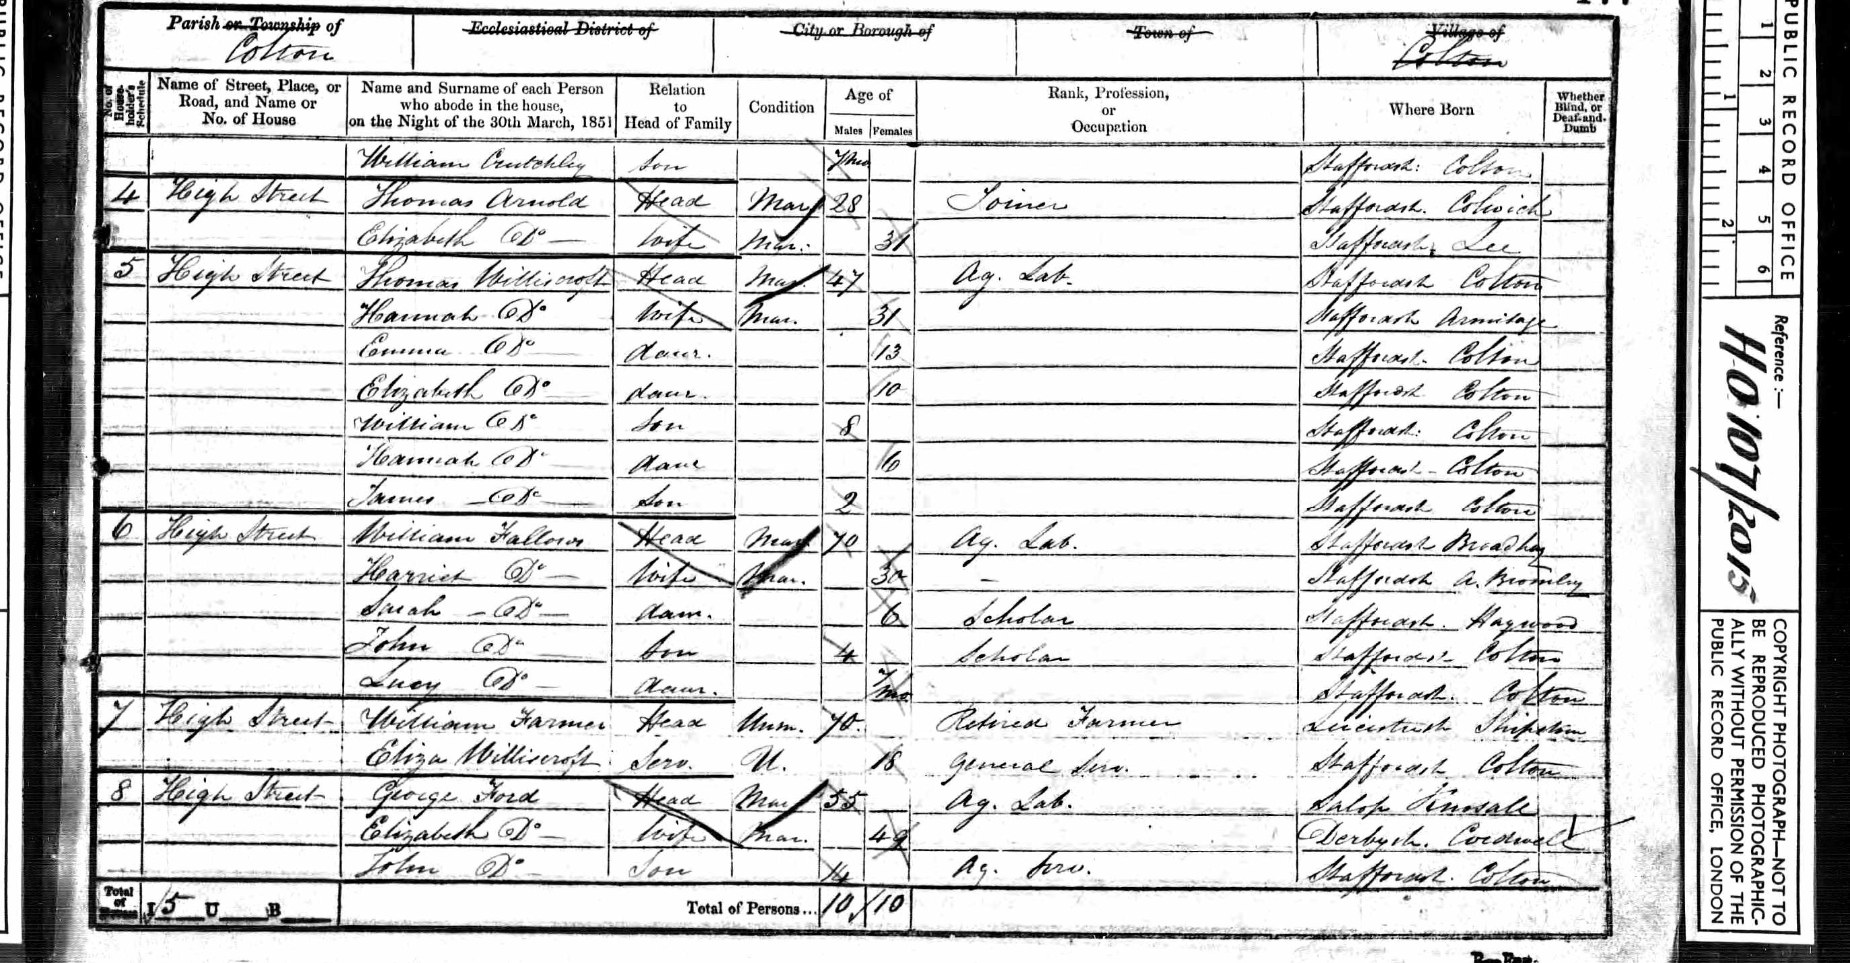 Parish or Township of
Colton
Ecclesiastical District of
City or Borough of
Town of
Village of
Colton
No. of House-holder's Schedule
Name of Street, Place, or Road, and Name or No. of House
Name and Surname of each Person who abode in the house, on the Night of the 30th March, 1851
Relation to Head of Family
Condition
Age of
Males Females
Rank, Profession, or Occupation
Where Born
Whether Blind, or Deaf-and-Dumb
William Crutchley Son 7mo Staffordsh: Colton
4 High Street Thomas Arnold Head Mar 28 Joiner Staffordsh. Colwich
Elizabeth Do Wife Mar: 31 Staffordsh. Lee
5 High Street Thomas Williscroft Head Mar 47 Ag. Lab. Staffordsh Colton
Hannah Do Wife Mar. 31 Staffordsh Armitage
Emma Do daur. 13 Staffordsh. Colton
Elizabeth Do daur. 10 Staffordsh Colton
William Do Son 8 Staffordsh: Colton
Hannah Do daur 6 Staffordsh - Colton
James Do Son 2 Staffordsh Colton
6 High Street William Fallows Head Mar 70 Ag. Lab. Staffordsh
Harriet Do Wife Mar. 30 - Staffordsh A. Bromley
Sarah Do daur. 6 Scholar Staffordsh. Haywood
John Do Son 4 Scholar Staffordsh Colton
Lucy Do daur. 7mo Staffordsh. Colton
7 High Street William Farmer Head Unm. 70. Retired Farmer Leicestersh
Eliza Williscroft Serv. U. 18 General Serv. Staffordsh Colton
8 High Street George Ford Head Mar 55 Ag. Lab. Salop
Elizabeth Do Wife Mar. 49 Derbysh.
John Do Son 14 Ag. Serv. Staffordsh. Colton
Total of Houses I 5 U B Total of Persons... 10 10
PUBLIC RECORD OFFICE
1 2 3 4 5 6
1 2
Reference:-
HO 107/2015
COPYRIGHT PHOTOGRAPH—NOT TO BE REPRODUCED PHOTOGRAPHIC-ALLY WITHOUT PERMISSION OF THE PUBLIC RECORD OFFICE, LONDON